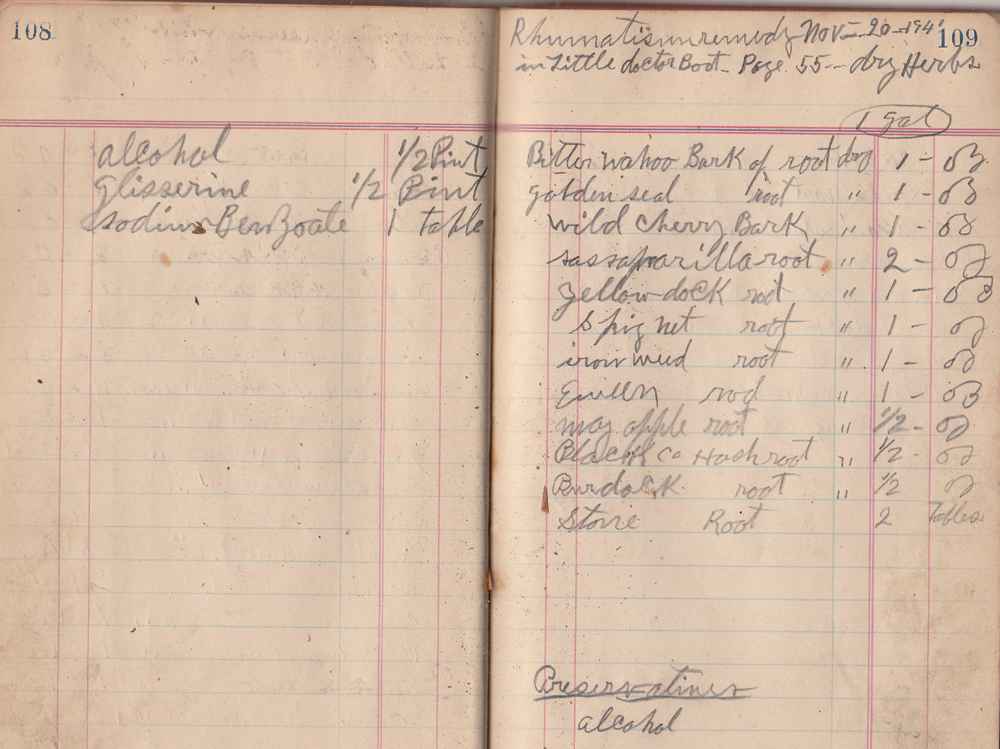 108
alcohol 1/2 Pint
Glisserine 1/2 Pint
sodium BenZoate 1 table
109
Rhumatism remedy Nov - 20 - 194
in Little doctor Boot - Page 55 - - dry Herbs
1 gal
Bitter wahoo Bark of root dry 1 - oz
golden seal root " 1 - oz
wild cherry Bark " 1 - oz
sassaparilla root " 2 - oz
yellow dock root " 1 - oz
spignet root " 1 - oz
iron weed root " 1 - oz
root " 1 - oz
may apple root " 1/2 - oz
Black co Hosh root " 1/2 - oz
Burdock root " 1/2 oz
Stone Root 2 Tables
Preservatives
alcohol